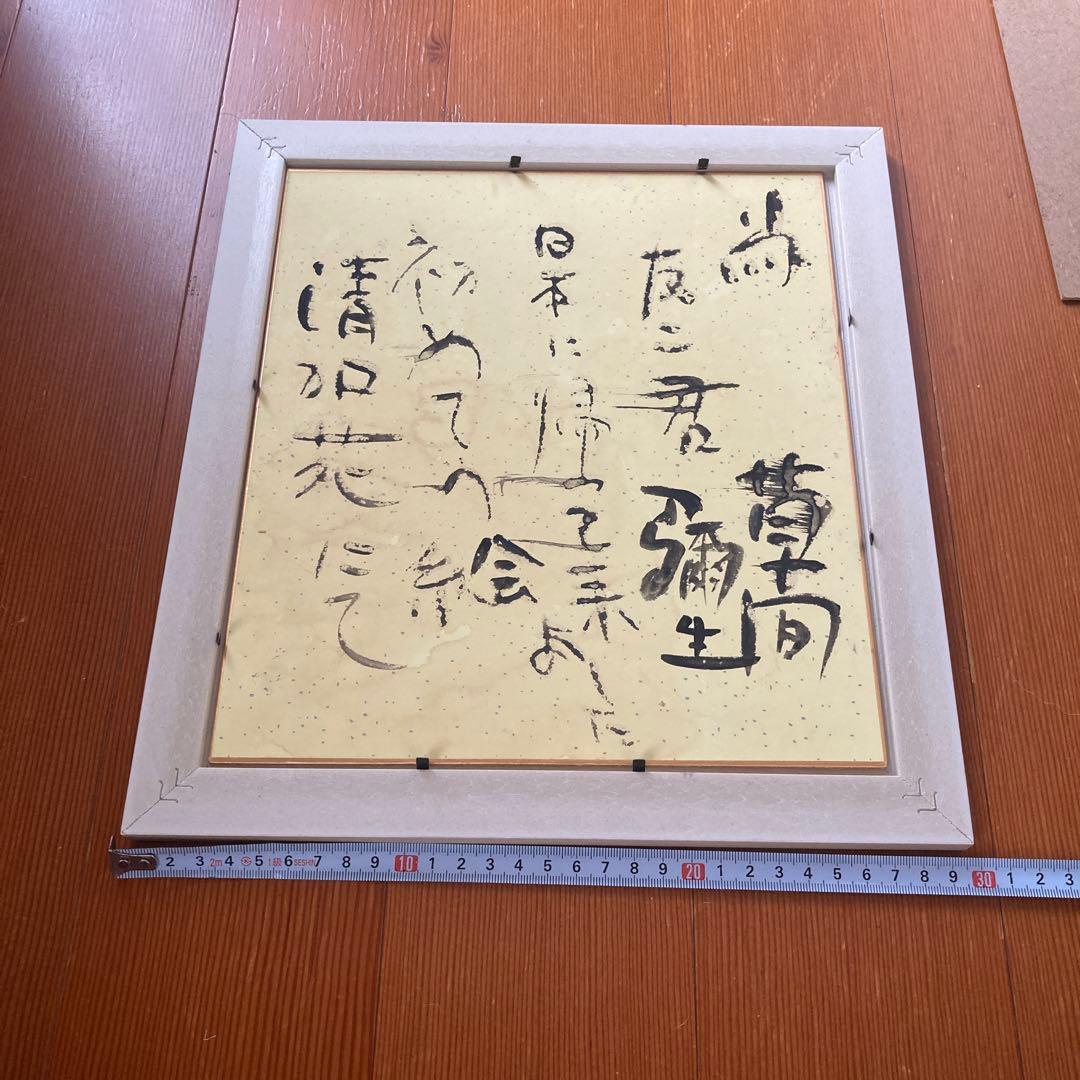 為 草間
二君 彌生
日本に帰って来ました
初めての絵
清加苑にて
2 3 2m 4 5 1級 6 7 8 9 10 1 2 3 4 5 6 7 8 9 20 1 2 3 4 5 6 7 8 9 30 1 2 3